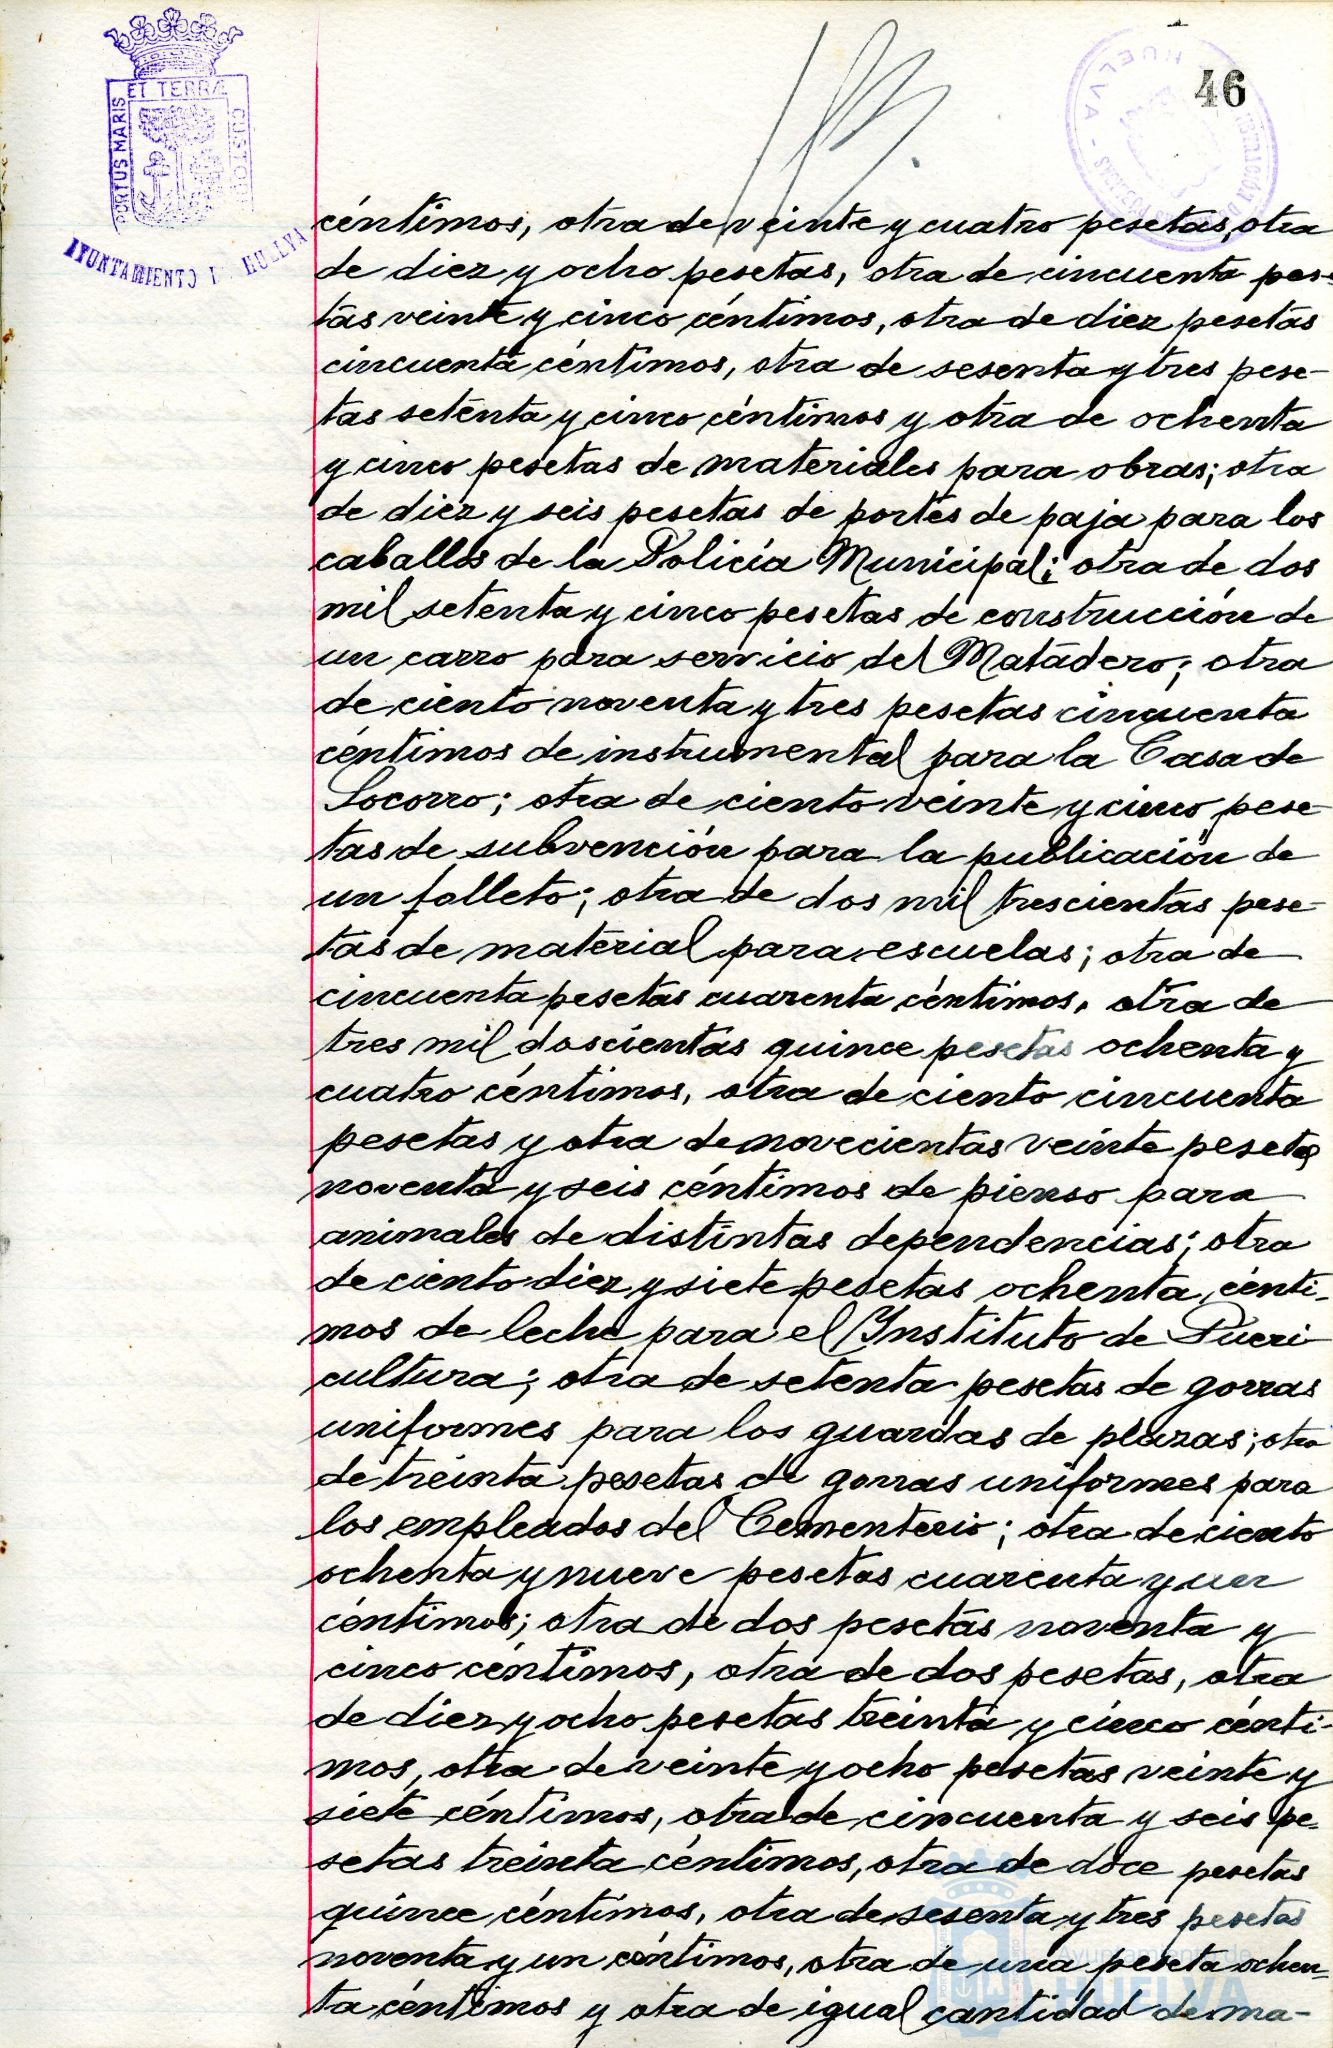 46
ET TERRÆ
PORTUS MARIS
CUSTODI
AYUNTAMIENTO HUELVA
HUELVA
céntimos, otra de veinte y cuatro pesetas, otra
de diez y ocho pesetas, otra de cincuenta pese-
tas veinte y cinco céntimos, otra de diez pesetas
cincuenta céntimos, otra de sesenta y tres pese-
tas setenta y cinco céntimos y otra de ochenta
y cinco pesetas de materiales para obras; otra
de diez y seis pesetas de portes de paja para los
caballos de la Policía Municipal; otra de dos
mil setenta y cinco pesetas de construcción de
un carro para servicio del Matadero; otra
de ciento noventa y tres pesetas cincuenta
céntimos de instrumental para la Casa de
Socorro; otra de ciento veinte y cinco pese-
tas de subvención para la publicación de
un folleto; otra de dos mil trescientas pese-
tas de material para escuelas; otra de
cincuenta pesetas cuarenta céntimos, otra de
tres mil doscientas quince pesetas ochenta y
cuatro céntimos, otra de ciento cincuenta
pesetas y otra de novecientas veinte pesetas
noventa y seis céntimos de pienso para
animales de distintas dependencias; otra
de ciento diez y siete pesetas ochenta cénti-
mos de leche para el Instituto de Pueri
cultura; otra de setenta pesetas de gorras
uniformes para los guardas de plazas; otra
de treinta pesetas de gorras uniformes para
los empleados del Cementerio; otra de ciento
ochenta y nueve pesetas cuarenta y un
céntimos; otra de dos pesetas noventa y
cinco céntimos, otra de dos pesetas, otra
de diez y ocho pesetas treinta y cinco cénti-
mos, otra de veinte y ocho pesetas veinte y
siete céntimos, otra de cincuenta y seis pe-
setas treinta céntimos, otra de doce pesetas
quince céntimos, otra de sesenta y tres pesetas
noventa y un céntimos, otra de una peseta ochen-
ta céntimos y otra de igual cantidad de ma-
Ayuntamiento de
HUELVA